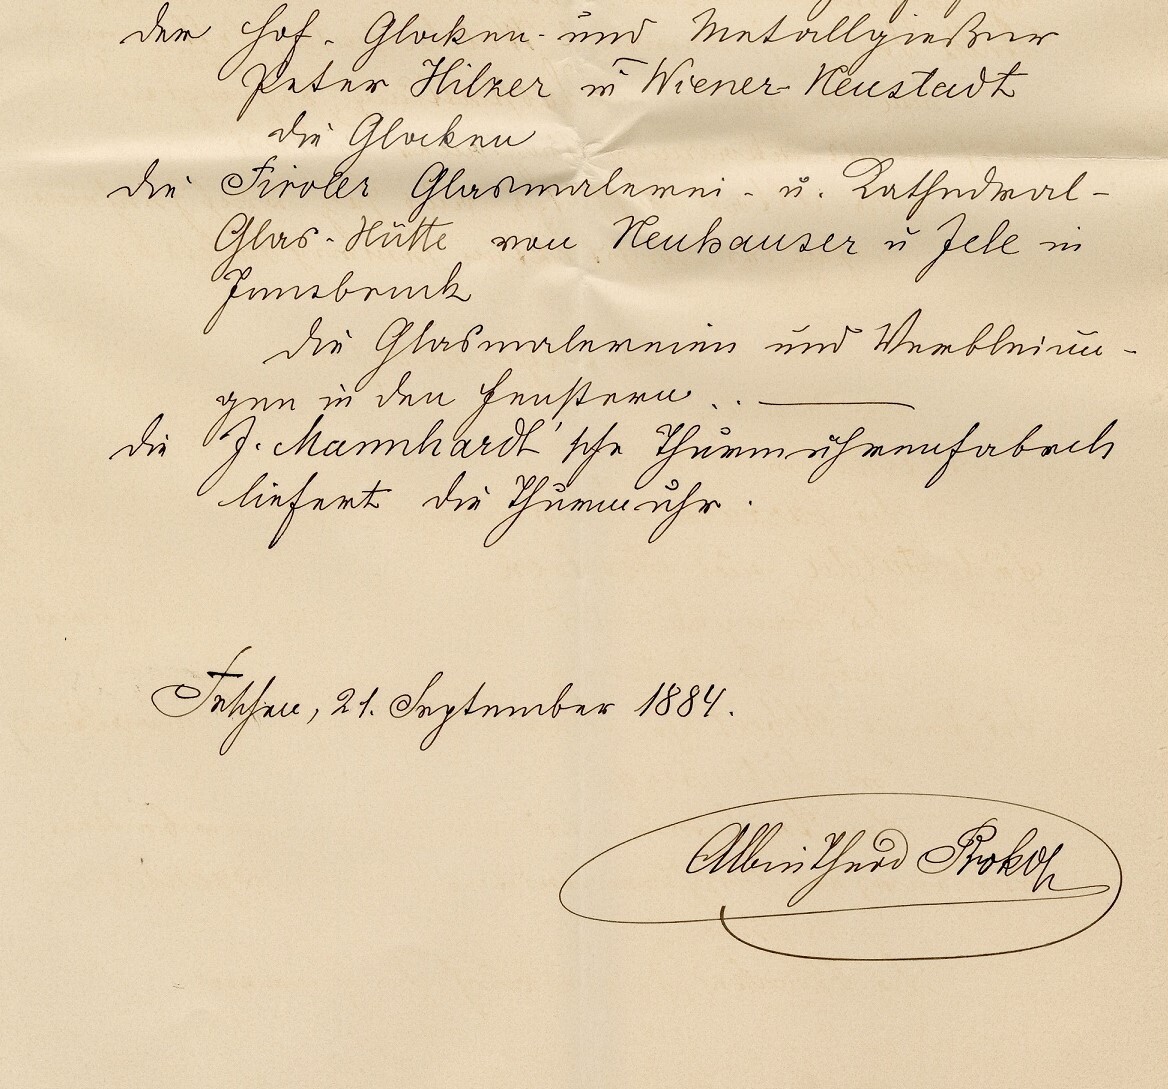 der Hof-Glocken- und Metallgießer
Peter Hilzer in Wiener-Neustadt
die Glocken
die Tiroler Glasmalerei- u. Kathedral-
Glas-Hütte von Neuhauser u Jele in
Innsbruck
die Glasmalereien und Verbleiun-
gen in den Fenstern. . —
die J. Mannhardt'sche Thurmuhrenfabrik
liefert die Thurmuhr.
Teschen, 21. September 1884.
Albin Theod Prokop